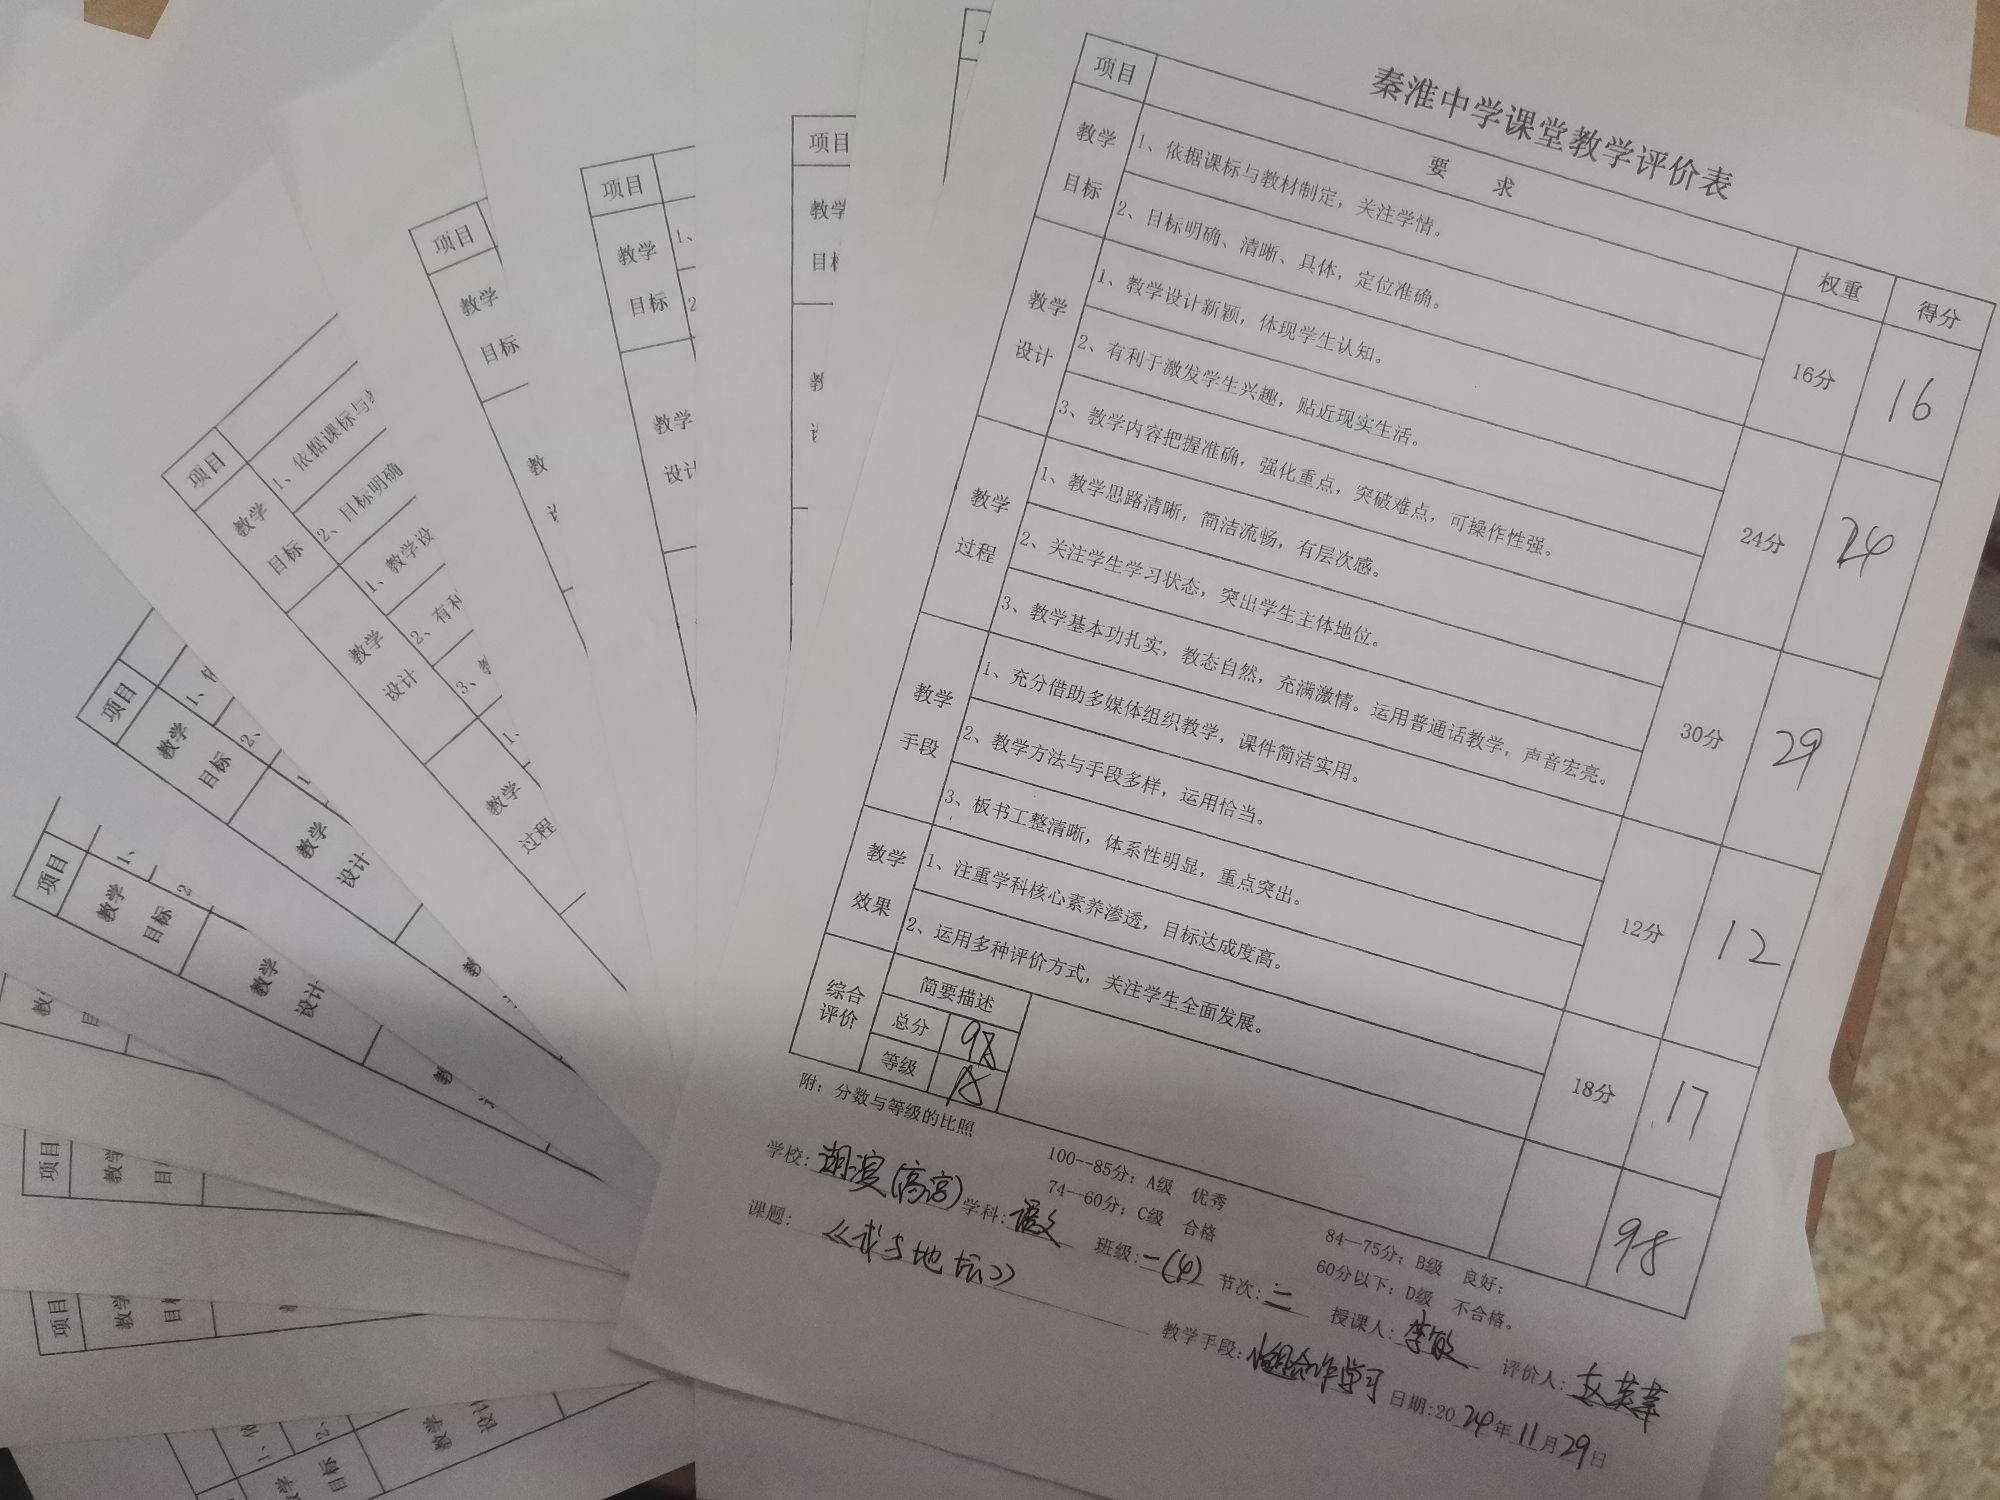 秦淮中学课堂教学评价表
项目 要 求 权重 得分
教学目标 1、依据课标与教材制定，关注学情。 16分 16
2、目标明确、清晰、具体，定位准确。
教学设计 1、教学设计新颖，体现学生认知。 24分 24
2、有利于激发学生兴趣，贴近现实生活。
3、教学内容把握准确，强化重点，突破难点，可操作性强。
教学过程 1、教学思路清晰，简洁流畅，有层次感。 30分 29
2、关注学生学习状态，突出学生主体地位。
3、教学基本功扎实，教态自然，充满激情。运用普通话教学，声音宏亮。
教学手段 1、充分借助多媒体组织教学，课件简洁实用。 12分 12
2、教学方法与手段多样，运用恰当。
3、板书工整清晰，体系性明显，重点突出。
教学效果 1、注重学科核心素养渗透，目标达成度高。 18分 17
2、运用多种评价方式，关注学生全面发展。
综合评价 简要描述 98
总分 98
等级
附：分数与等级的比照
100--85分：A级 优秀 84--75分；B级 良好；
74--60分：C级 合格 60分以下：D级 不合格。
学校：湖滨(高宫) 学科：语文 班级：一(4) 节次：二 授课人：李敏 评价人：
课题：《我与地坛》 教学手段：小组合作学习 日期：2024年11月29日
项目
教学
目标
教
项目
教学
目标
1、
2
教学
设计
项目
教学
目标
教
项目
教学
目标
1、依据课标与
2、目标明确
教学
设计
1、教学设
2、有利
3、
教学
过程
1、
项目
教学
目标
1、
2、
教学
设计
教
项目
教学
目标
1、
2
教学
设计
教
项目
教学
项目
教学
教学
设计
目标
1、
2、